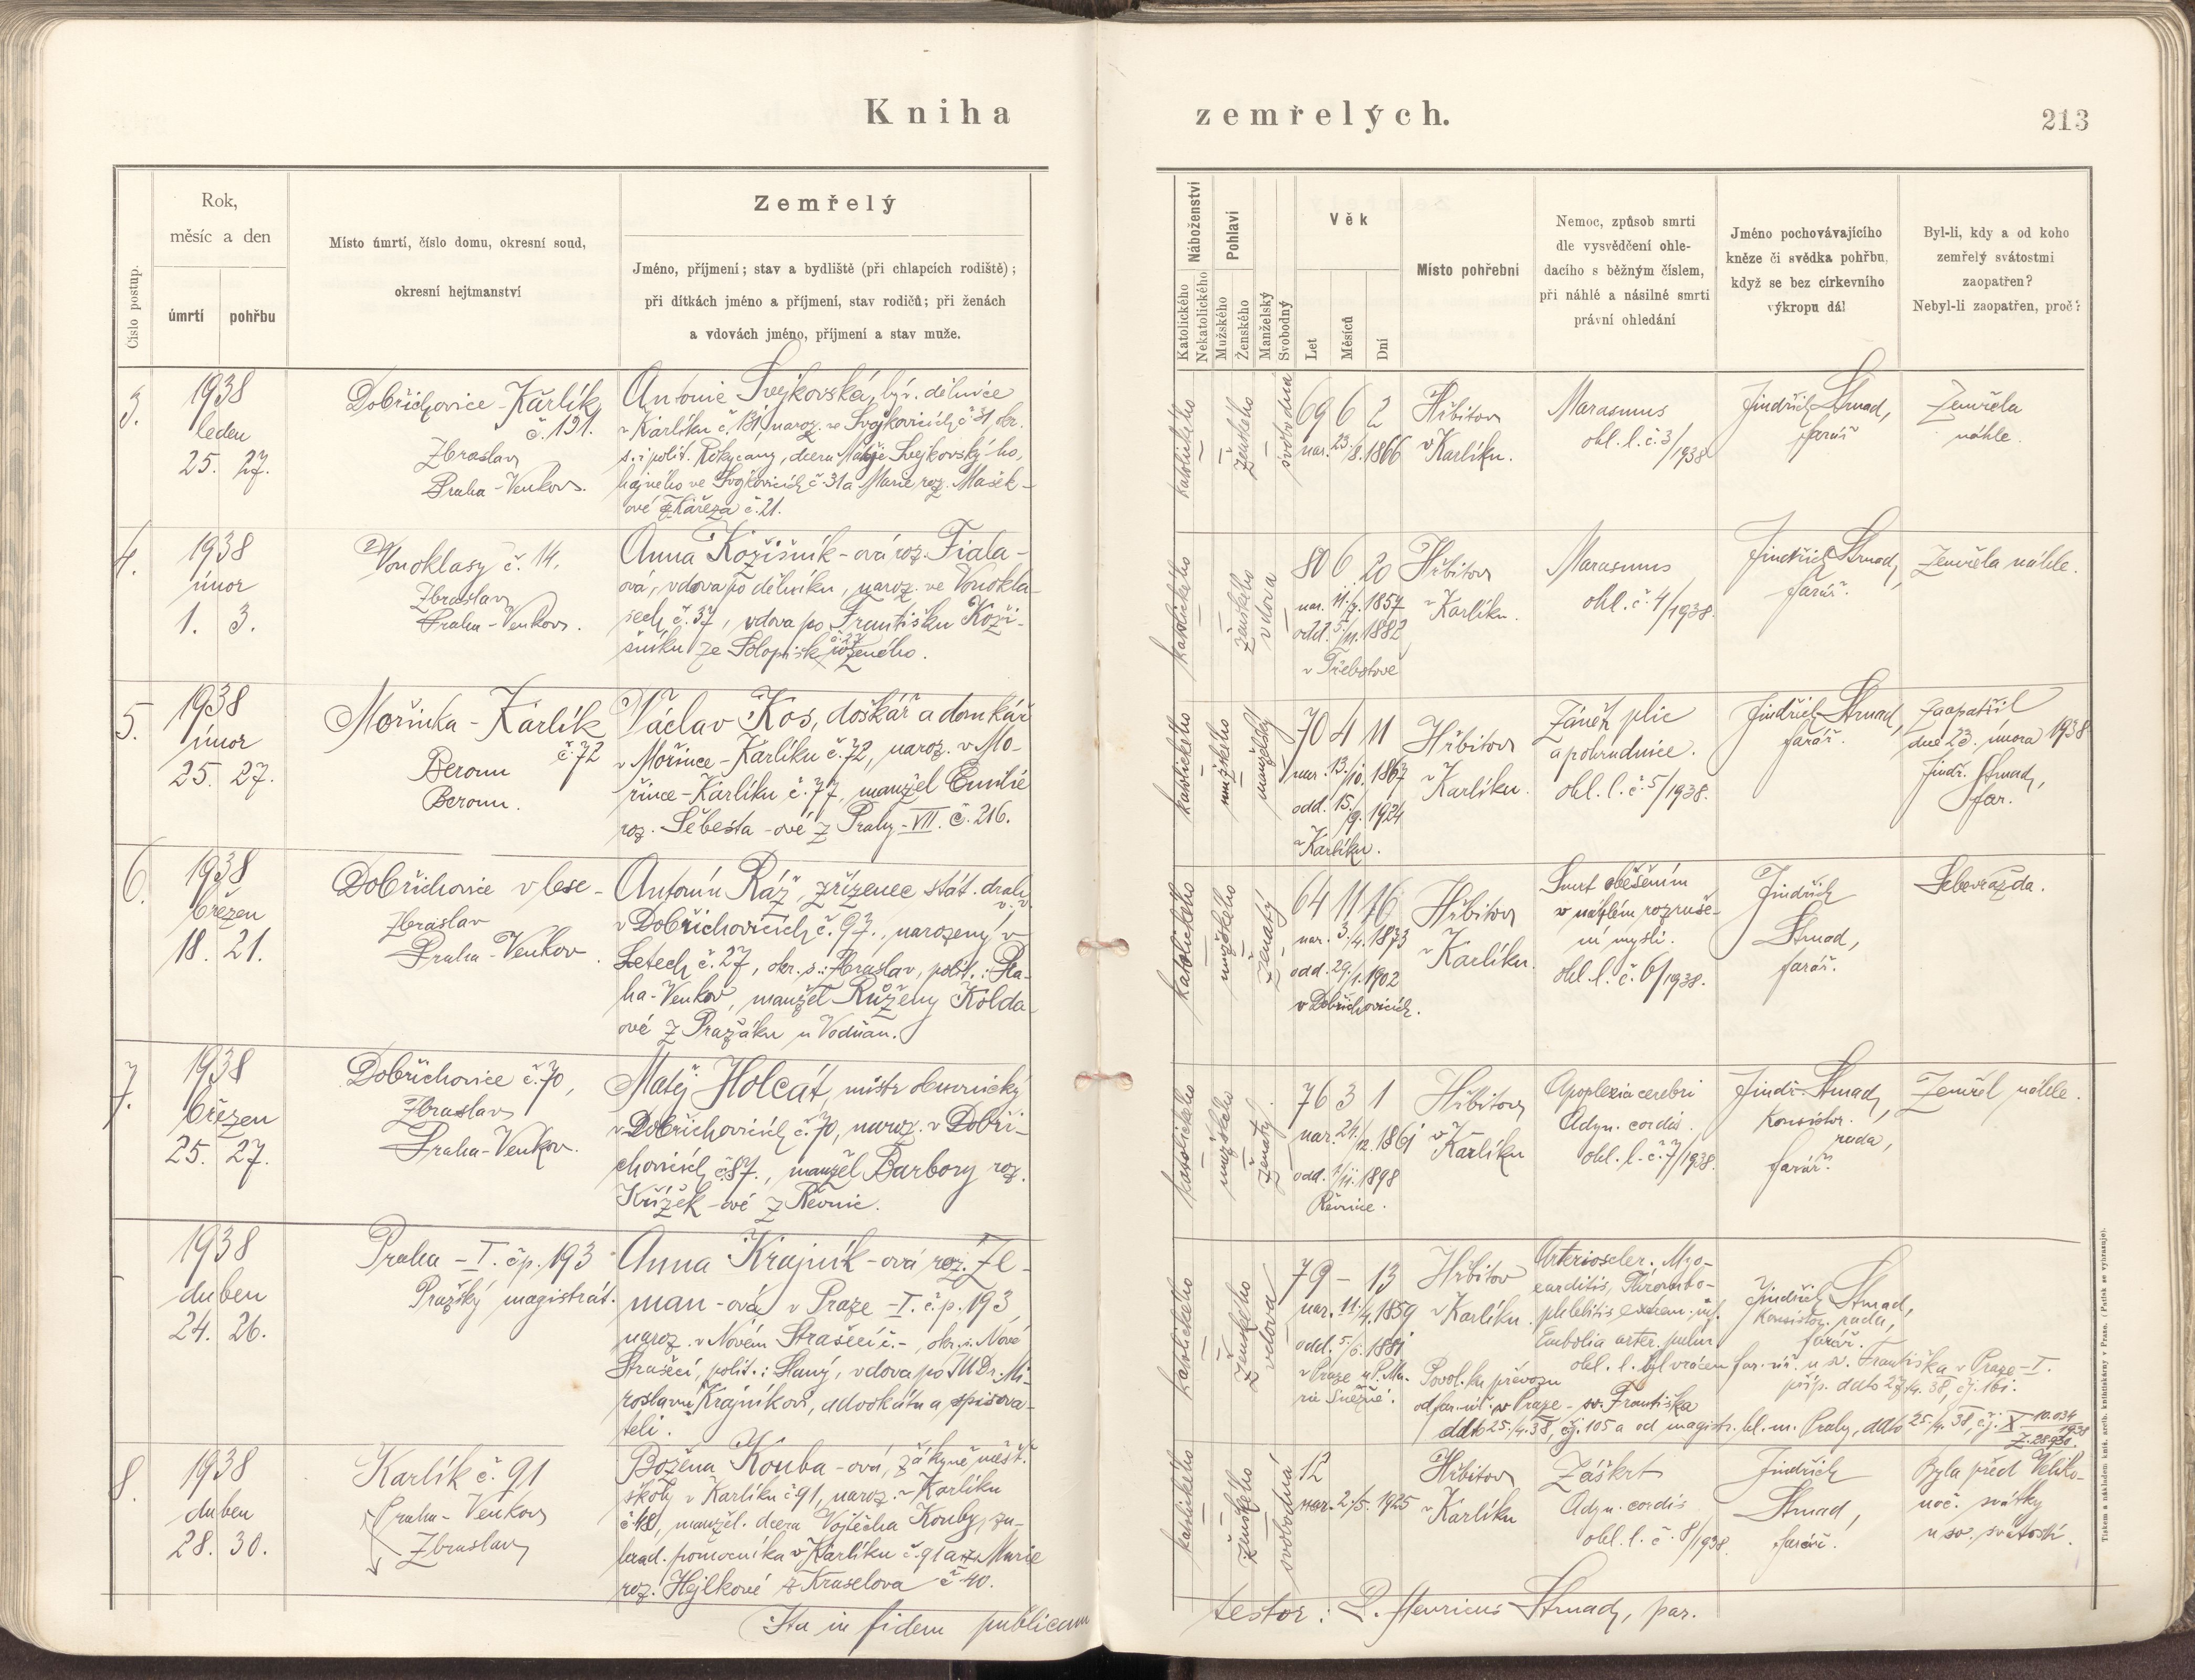 Kniha zemřelých.
213
Číslo postup.
Rok,
měsíc a den
úmrtí
pohřbu
Místo úmrtí, číslo domu, okresní soud,
okresní hejtmanství
Zemřelý
Jméno, příjmení; stav a bydliště (při chlapcích rodiště);
při dítkách jméno a příjmení, stav rodičů; při ženách
a vdovách jméno, příjmení a stav muže.
Náboženství
Katolického
Nekatolického
Pohlaví
Mužského
Ženského
Manželský
Svobodný
Věk
Let
Měsíců
Dní
Místo pohřební
Nemoc, způsob smrti
dle vysvědčení ohle-
dacího s běžným číslem,
při náhlé a násilné smrti
právní ohledání
Jméno pochovávajícího
kněze či svědka pohřbu,
když se bez církevního
výkropu dál
Byl-li, kdy a od koho
zemřelý svátostmi
zaopatřen?
Nebyl-li zaopatřen, proč?
3.
1938
leden
25. 27.
Dobřichovice - Karlík
č. 131.
Zbraslav
Praha - Venkov.
Antonie Svejkovská, býv. dělnice
v Karlíku č. 131, naroz. ve Svojkovicích č. 31, okr.
s. i polit. Rokycany, dcera Matěje Svejkovský-ho,
hajného ve Svojkovicích č. 31 a Marie roz. Mašek-
ové z Kařeza č. 21.
katolického
ženského
svobodná
69 6 2
nar. 23/8. 1866
Hřbitov
v Karlíku.
Marasmus
ohl. l. č. 3/1938
Jindřich Strnad,
farář
Zemřela
náhle.
4.
1938
únor
1. 3.
Vonoklasy č. 14.
Zbraslav
Praha - Venkov.
Anna Kožišník-ová roz. Fiala-
ová, vdova po dělníku, naroz. ve Vonokla-
sech č. 37, vdova po Františku Koži-
šníku ze Solopisk č. 27 rozeného.
katolického
ženského
vdova
80 6 20
nar. 11/7. 1857
odd. 5/11. 1882
v Třebotově
Hřbitov
v Karlíku.
Marasmus
ohl. č. 4/1938.
Jindřich Strnad,
farář.
Zemřela náhle.
5.
1938
únor
25. 27.
Mořinka - Karlík
č. 72
Beroun
Beroun.
Václav Kos, doškář a domkář
v Mořince - Karlíku č. 72, naroz. v Mo-
řince - Karlíku č. 77, manžel Emilie
roz. Šebesta-ové z Prahy - VII. č. 216.
katolického
mužského
manželský
70 4 11
nar. 13/10. 1867
odd. 15/9. 1924
v Karlíku.
Hřbitov
v Karlíku.
Zánět plic
a pohrudnice.
ohl. l. č. 5/1938.
Jindřich Strnad,
farář.
Zaopatřil
dne 23. února 1938
Jindř. Strnad,
far.
6.
1938
březen
18. 21.
Dobřichovice v lese -
Zbraslav
Praha - Venkov.
Antonín Ráž, zřízenec stát. drah
v. v.
v Dobřichovicích č. 97., narozený v
Letech č. 27, okr. s.: Zbraslav, polit.: Pra-
ha - Venkov, manžel Růženy Kolda-
ové z Pražáku u Vodňan.
katolického
mužského
ženatý
64 11 16
nar. 3/4. 1873
odd. 29/1. 1902
v Dobřichovicích.
Hřbitov
v Karlíku.
Smrt oběšením
v náhlém rozruše-
ní mysli.
ohl. l. č. 6/1938.
Jindřich
Strnad,
farář.
Sebevražda.
7.
1938
březen
25. 27.
Dobřichovice č. 70,
Zbraslav
Praha - Venkov.
Matěj Holcát, mistr obuvnický
v Dobřichovicích č. 70, naroz. v Dobři-
chovicích č. 87., manžel Barbory roz.
Křížek-ové z Řevnic.
katolického
mužského
ženatý.
76 3 1
nar. 24/12. 1861
odd. 1/11. 1898
Řevnice.
Hřbitov
v Karlíku
Apoplexia cerebri
Adyn. cordis.
ohl. l. č. 7/1938.
Jindř. Strnad,
Konsistor.
rada,
farář.
Zemřel náhle.
1938
duben
24. 26.
Praha - I. čp. 193
Pražský magistrát.
Anna Krajník-ová roz. Ze-
man-ová v Praze - I. č.p. 193,
naroz. v Novém Strašecí č. -, okr. s. Nové
Strašecí, polit.: Slaný, vdova po JUDr. Mi-
roslavu Krajníkovi, advokátu a spisova-
teli.
katolického
ženského
vdova
79 - 13
nar. 11/4. 1859
odd. 5/6. 1881
v Praze u P. Ma-
rie Sněžné.
Hřbitov
v Karlíku.
Arterioscler. Myo-
carditis, Thrombo-
phlebitis extrem. inf.
Embolia arter. pulm.
ohl. l. byl vrácen far. úř. u sv. Františka v Praze - I.
příp. ddto 27/4. 38, čj. 161.
Jindřich Strnad,
Konsistor. rada,
farář.
Povol. ku převozu
od far. úř. v Praze - sv. Františka
ddto 25./4. 38, čj. 105 a od magistr. hl. m. Prahy, ddto 25./4. 38, č.j.: X 10.034/1938
8.
1938
duben
28. 30.
Karlík č. 91
Praha - Venkov
Zbraslav
Božena Kouba-ová, žákyně měšť.
školy v Karlíku č. 91, naroz. v Karlíku
č. 18, manžel. dcera Vojtěcha Kouby, za-
hrad. pomocníka v Karlíku č. 91 a Marie
roz. Hejlkové z Kraselova č. 40.
katolického
ženského
svobodná
12
nar. 2/5. 1925
Hřbitov
v Karlíku
Záškrt
Adyn. cordis
ohl. l. č. 8/1938.
Jindřich
Strnad,
farář.
Byla před Veliko-
noč. svátky
u sv. svátostí.
Ita in fidem publicam testor: P. Henricus Strnad, par.
Tiskem a nákladem knih. arcib. knihtiskárny v Praze. (Patisk se vyhrazuje).